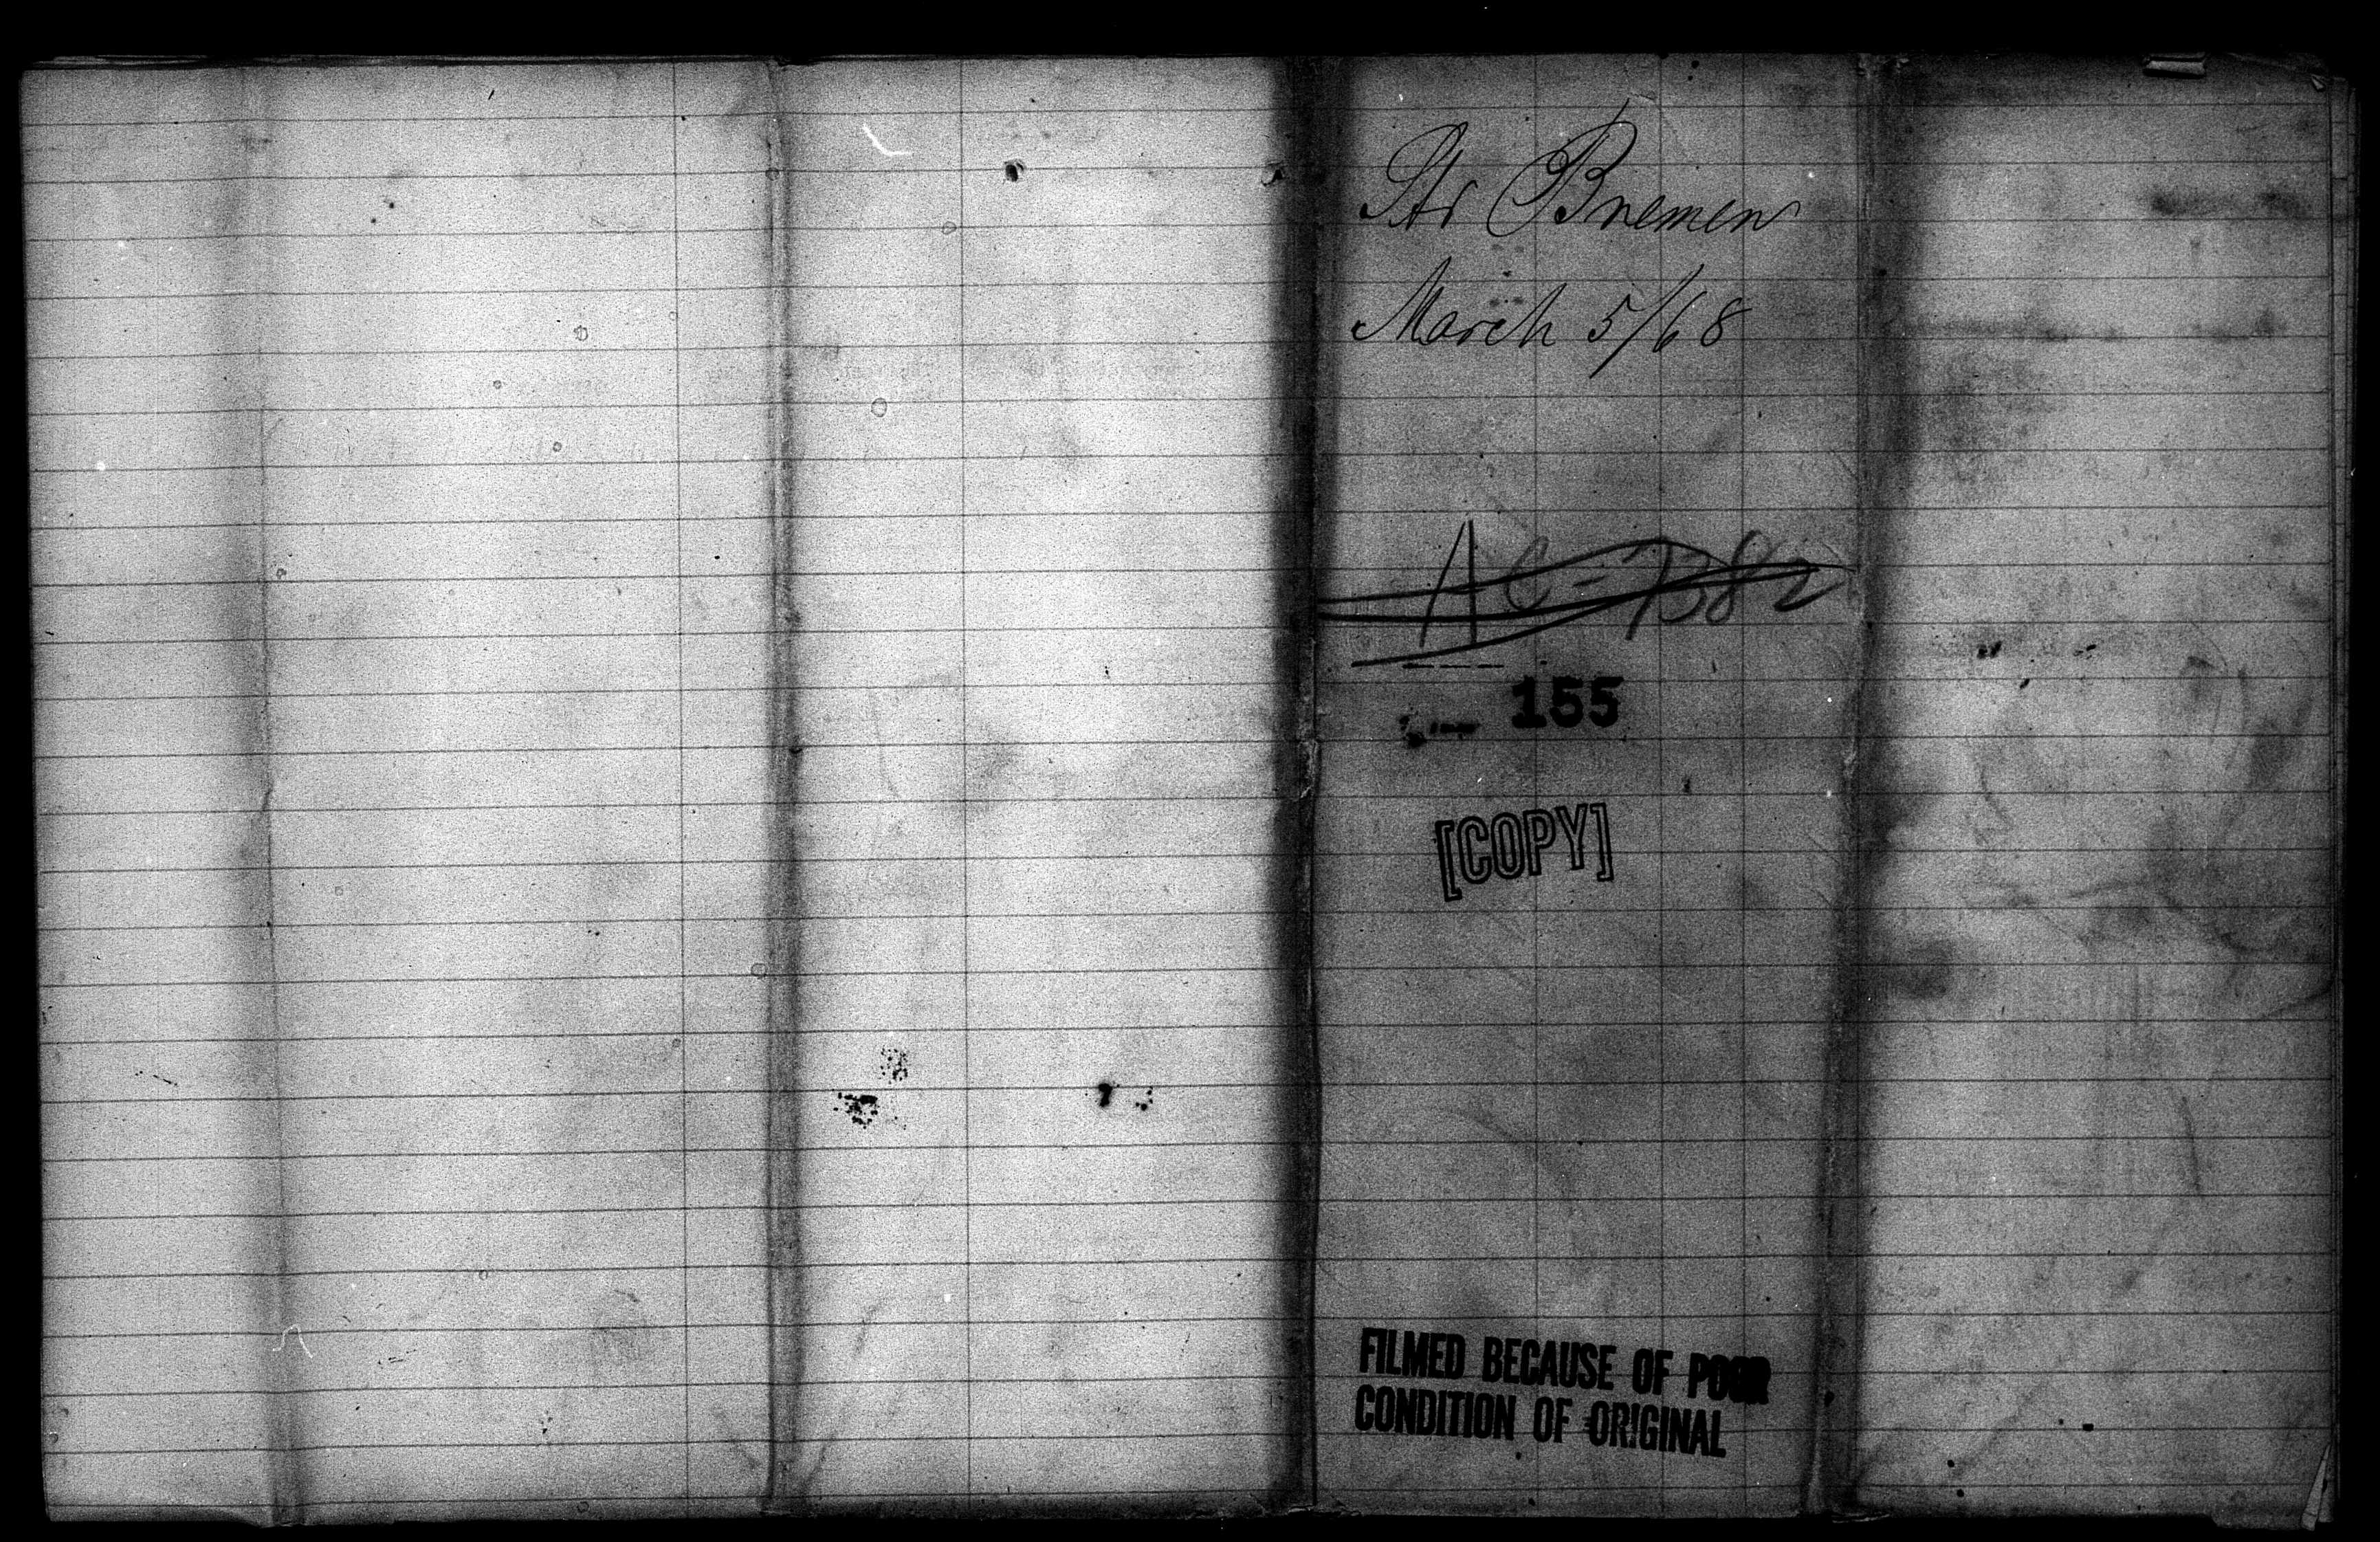 Str Bremen
March 5/68
AC-B82
155
[COPY]
FILMED BECAUSE OF POOR
CONDITION OF ORIGINAL